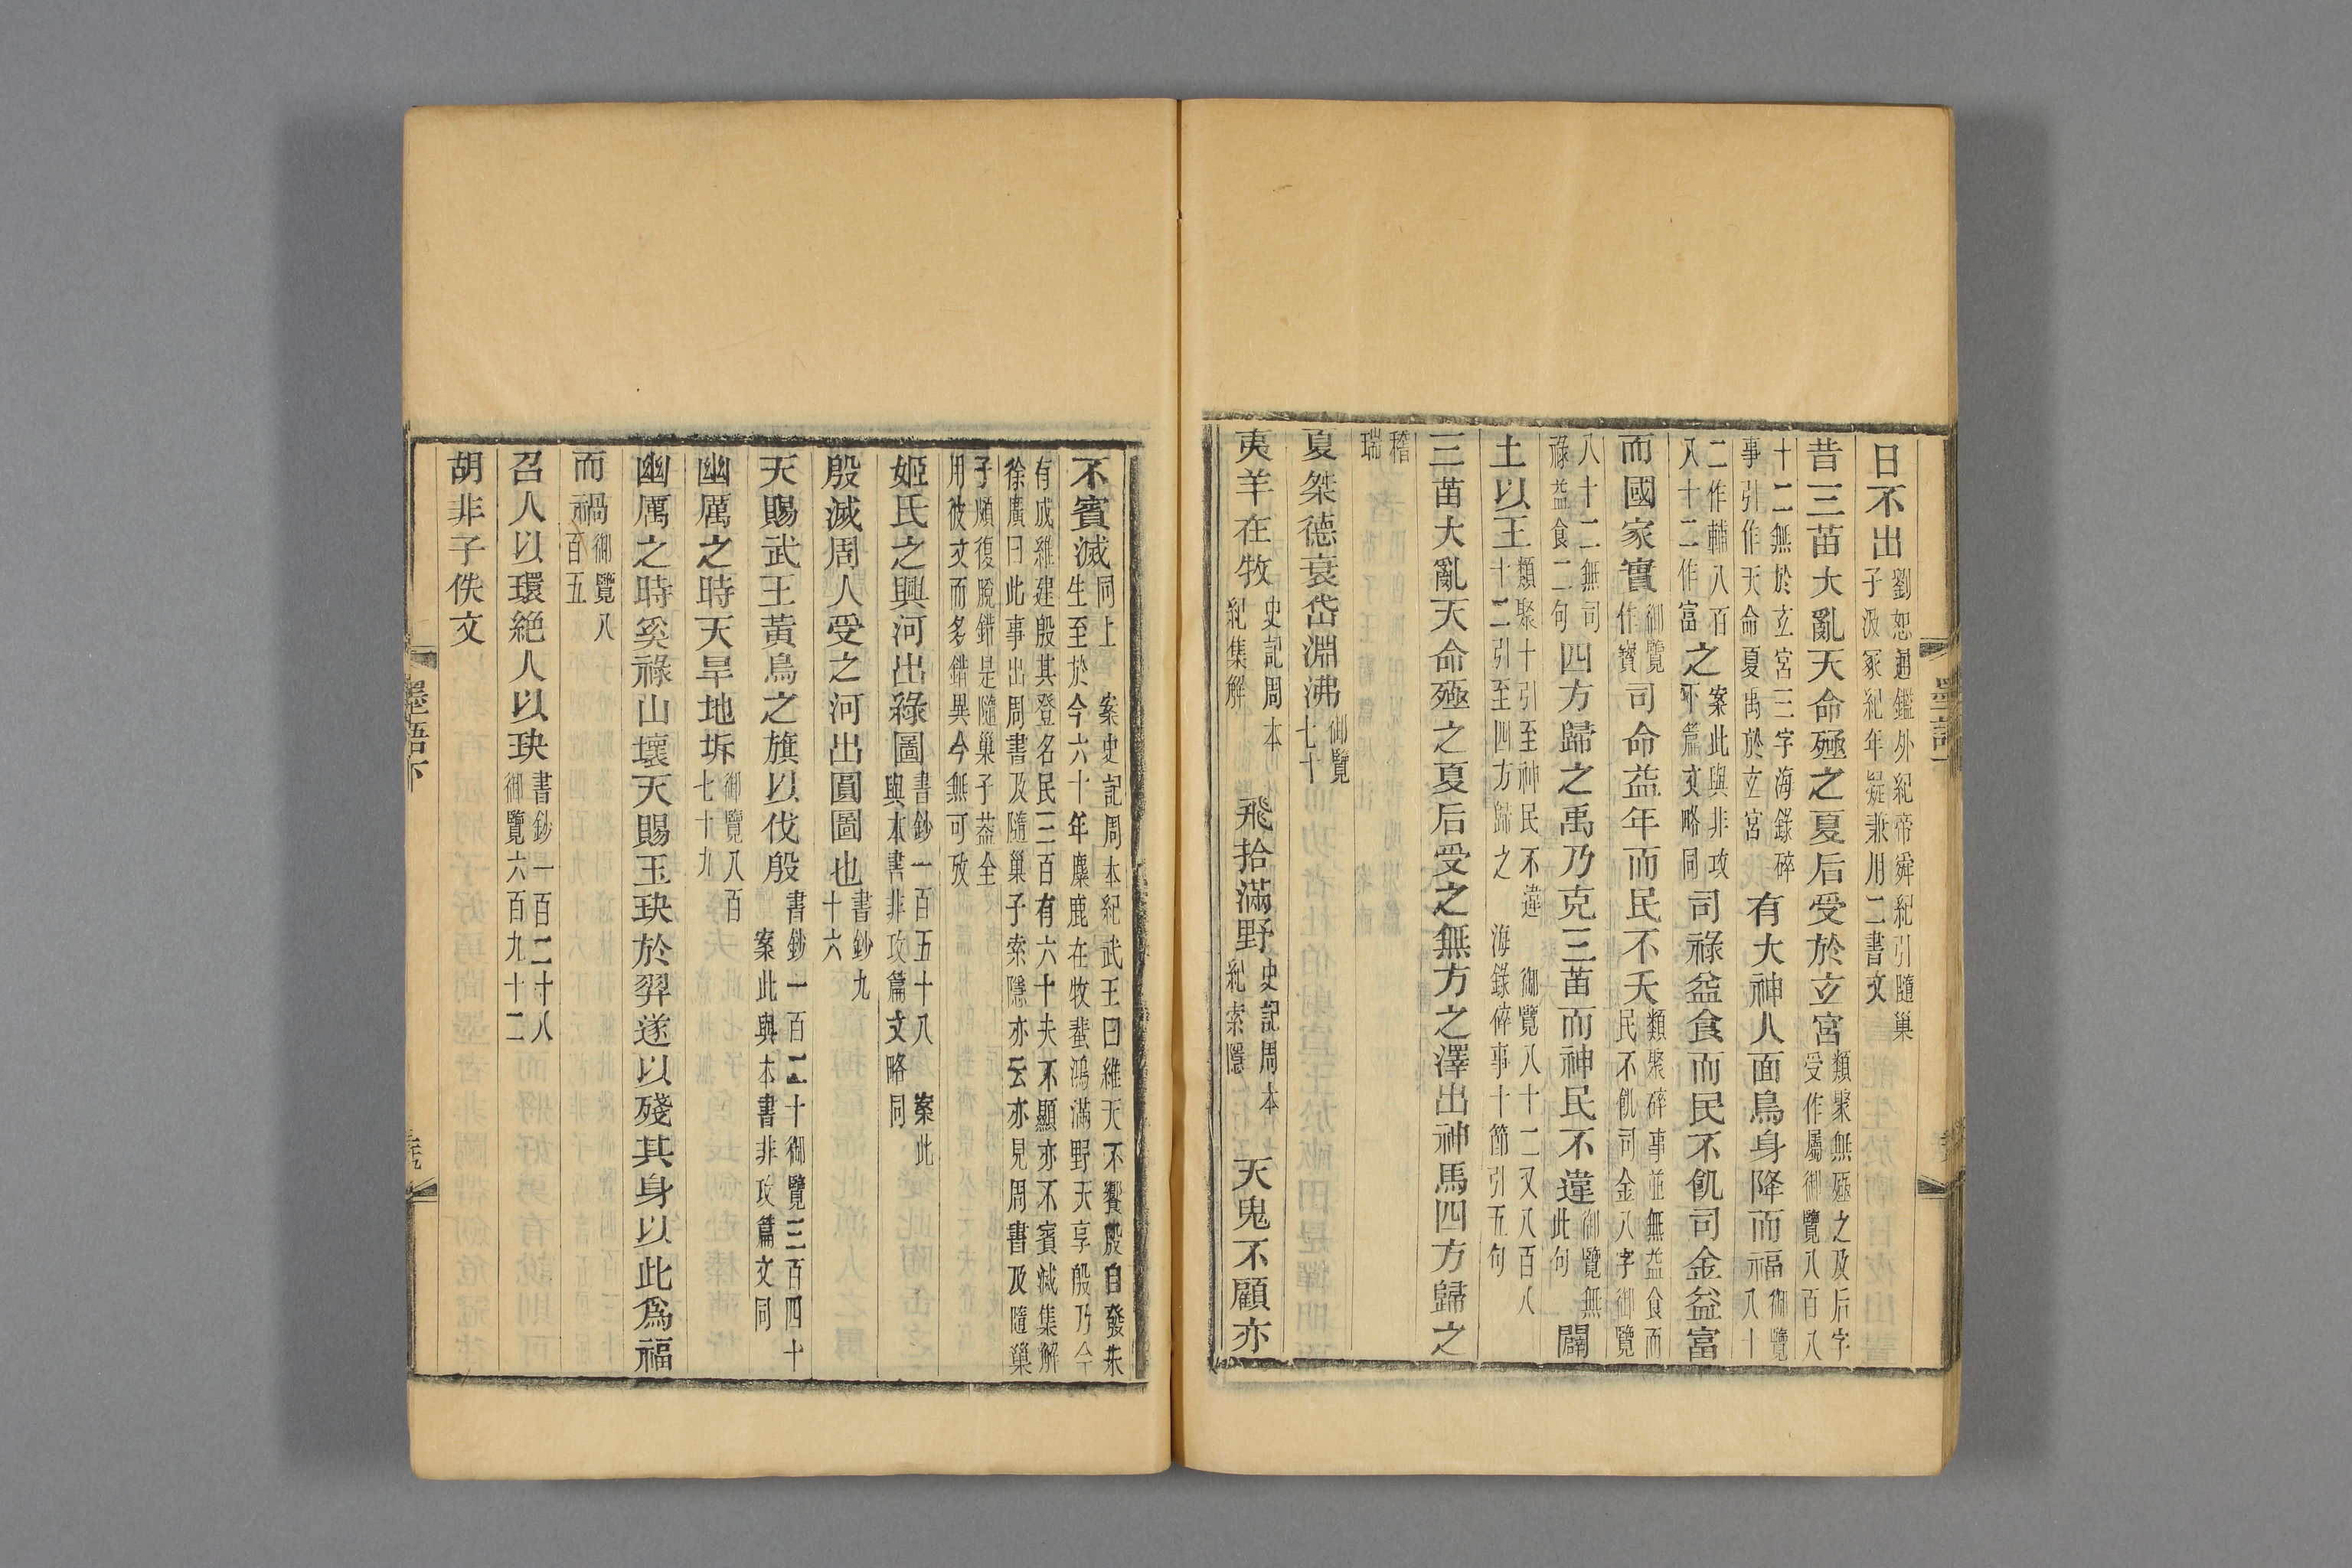 日不出劉恕通鑑外紀帝舜紀引隨巢子汲冢紀年疑兼用二書文
昔三苗大亂天命殛之夏后受於玄宮類聚無殛之及后字受作屬御覽八百八
十二無於玄宮三字海錄碎事引作天命夏禹於玄宮有大神人面鳥身降而福御覽八十
二作輔八百八十二作富之案此與非攻下篇文略同司祿益食而民不飢司金益富
而國家實御覽作寶司命益年而民不夭類聚碎事並無益食而民不飢司金八字御覽
八十二無司祿益食二句四方歸之禹乃克三苗而神民不違御覽無此句闢
土以王類聚十引至神民不違十二引至四方歸之海錄碎事十節引五句御覽八十二又八百八
三苗大亂天命殛之夏后受之無方之澤出神馬四方歸之
稽瑞
夏桀德衰岱淵沸御覽七十
夷羊在牧史記周本紀集解飛拾滿野史記周本紀索隱天鬼不顧亦
不賓滅同上案史記周本紀武王曰維天不饗殷自發未生至於今六十年麋鹿在牧蜚鴻滿野天享殷乃今
有成維建殷其登名民三百有六十夫不顯亦不賓滅集解徐廣曰此事出周書及隨巢子索隱亦云亦見周書及隨巢
子頗復脫錯是隨巢子葢全用彼文而多錯異今無可攷
姬氏之興河出綠圖書鈔一百五十八案此與本書非攻篇文略同
殷滅周人受之河出圓圖也書鈔九十六
天賜武王黃鳥之旗以伐殷書鈔一百二十御覽三百四十案此與本書非攻篇文同
幽厲之時天旱地坼御覽八百七十九
幽厲之時奚祿山壞天賜玉玦於羿遂以殘其身以此爲福
而禍御覽八百五
召人以環絕人以玦書鈔一百二十八御覽六百九十二
胡非子佚文
墨語下